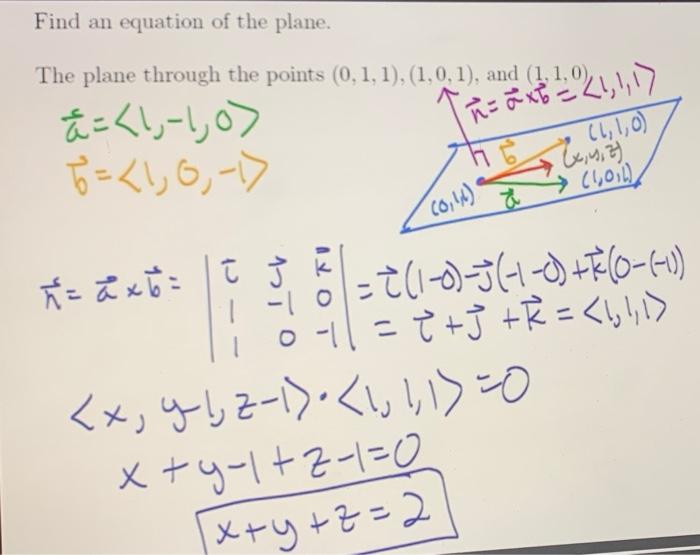 Find an equation of the plane.
The plane through the points (0, 1, 1), (1, 0, 1), and (1, 1, 0)
n⃗ = a⃗ × b⃗ = <1, 1, 1>
a⃗ = <1, -1, 0>
b⃗ = <1, 0, -1>
n⃗
b⃗
(1, 1, 0)
(x, y, z)
(1, 0, 1)
(0, 1, 1)
a⃗
n⃗ = a⃗ × b⃗ = | i⃗ j⃗ k⃗ | = i⃗(1-0) - j⃗(-1-0) + k⃗(0-(-1))
1 -1 0
1 0 -1
= i⃗ + j⃗ + k⃗ = <1, 1, 1>
<x, y-1, z-1> · <1, 1, 1> = 0
x + y-1 + z-1 = 0
x + y + z = 2